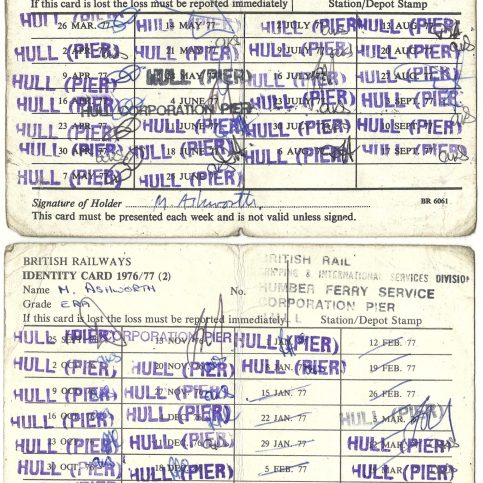 If this card is lost the loss must be reported immediately Station/Depot Stamp
26 MAR. 77 14 MAY 77 2 JULY 77 13 AUG. 77
HULL (PIER) HULL (PIER) HULL (PIER) HULL (PIER)
21 MAY 77 9 JULY 77 20 AUG. 77
HULL (PIER) HULL (PIER) HULL (PIER) HULL (PIER)
9 APR. 77 28 MAY 77 16 JULY 77 27 AUG. 77
HULL (PIER) HULL (PIER) HULL (PIER) HULL (PIER)
16 APR. 77 4 JUNE 77 23 JULY 77 3 SEPT. 77
HULL (PIER) HULL CORPORATION PIER HULL (PIER) HULL (PIER)
23 APR. 77 JUNE 77 30 JULY 77 10 SEPT. 77
HULL (PIER) HULL (PIER) HULL (PIER) HULL (PIER)
30 APR. 77 18 JUNE 77 6 AUG. 77 17 SEPT. 77
HULL (PIER) HULL (PIER) HULL (PIER) HULL (PIER)
7 MAY 77 25 JUNE 77
HULL (PIER) HULL (PIER)
Signature of Holder M. Ashworth BR 6061
This card must be presented each week and is not valid unless signed.
BRITISH RAILWAYS
IDENTITY CARD 1976/77 (2)
Name M. ASHWORTH No.
Grade ERA
BRITISH RAIL
SHIPPING & INTERNATIONAL SERVICES DIVISION
HUMBER FERRY SERVICE
CORPORATION PIER
If this card is lost the loss must be reported immediately Station/Depot Stamp
25 SEPT NOV 12 FEB. 77
HULL (PIER) CORPORATION PIER HULL (PIER)
2 OCT 20 NOV JAN. 77 19 FEB. 77
HULL (PIER) HULL (PIER) HULL (PIER)
9 OCT 27 NOV 15 JAN. 77 26 FEB. 77
HULL (PIER) HULL (PIER)
16 OCT DEC 22 JAN. 77 5 MAR. 77
HULL (PIER) HULL (PIER) HULL (PIER)
OCT DEC 29 JAN. 77 12 MAR. 77
HULL (PIER) HULL (PIER) HULL (PIER)
30 OCT. 76 18 DEC 5 FEB. 77 MAR. 77
HULL (PIER) HULL (PIER) HULL (PIER)